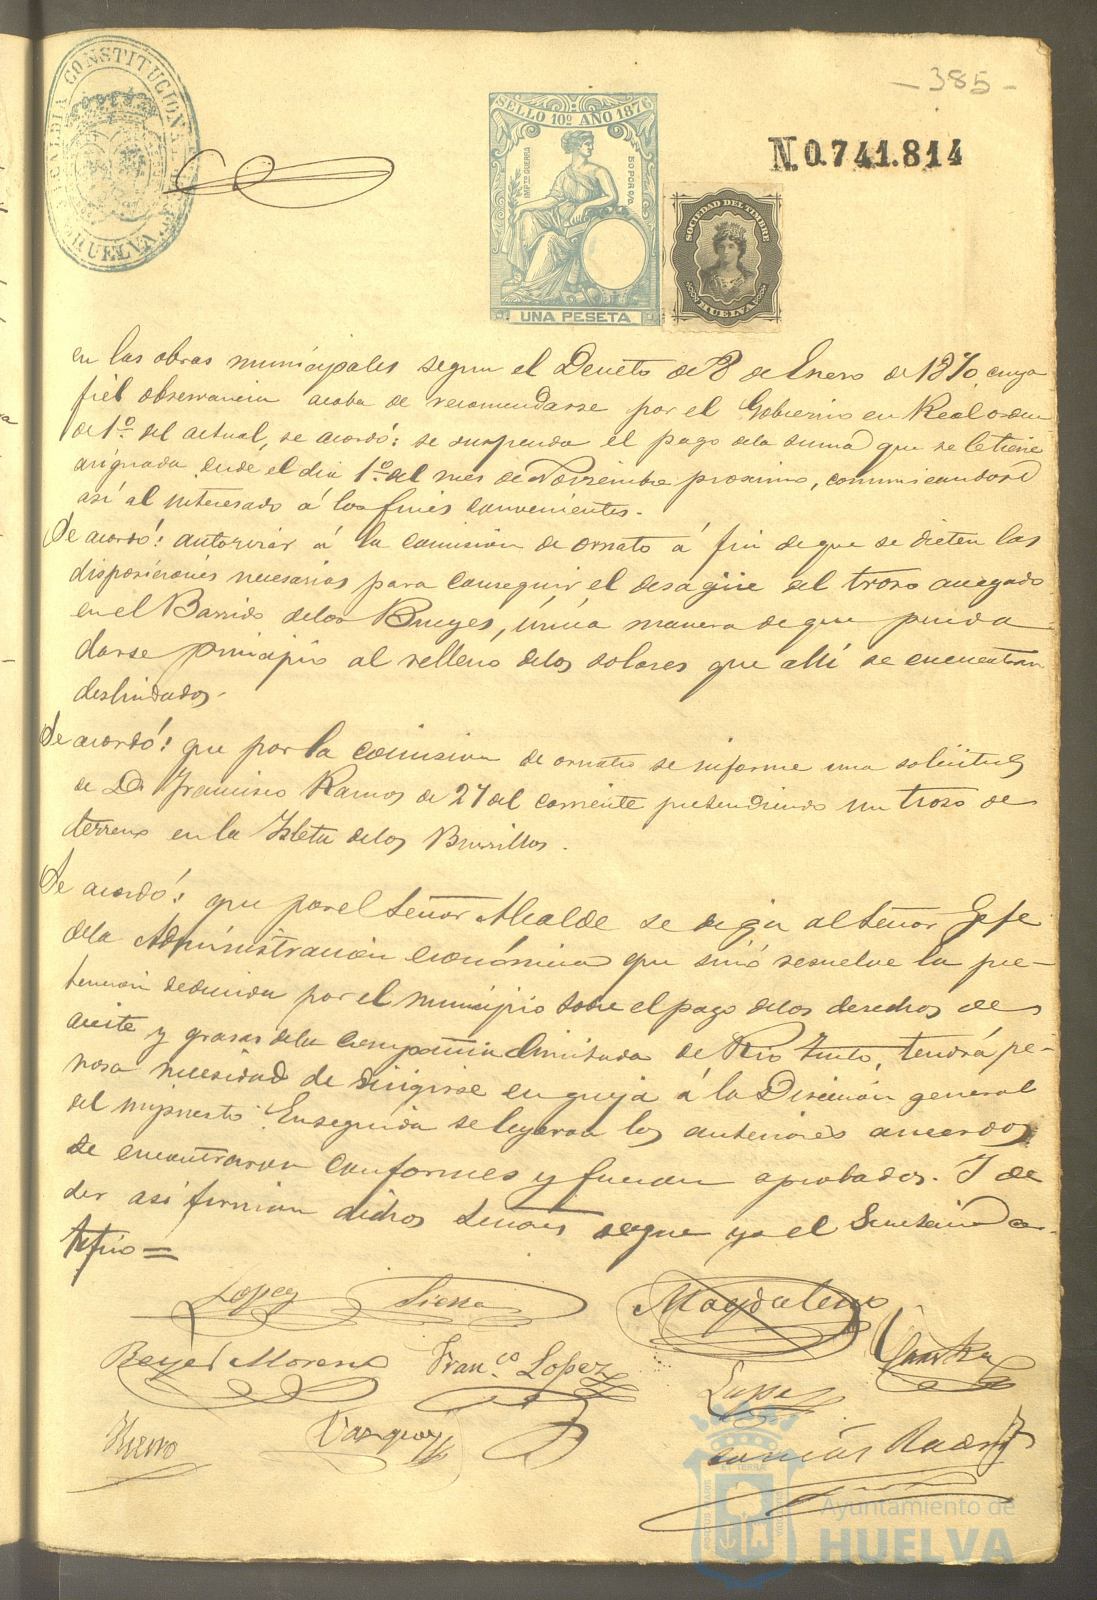 - 385 -
ALCALDIA CONSTITUCIONAL
HUELVA
SELLO 10º AÑO 1876
IMPTO GUERRA
50 POR 0/0
UNA PESETA
N. 0.741.814
SOCIEDAD DEL TIMBRE
HUELVA
en las obras municipales segun el Decreto de 8 de Enero de 1870, cuya
fiel observancia acaba de recomendarse por el Gobierno en Real orden
de 1º del actual, se acordó: se suspenda el pago de la suma que se le tiene
asignada desde el dia 1º del mes de Noviembre proximo, comunicandose
así al interesado á los fines convenientes.
Se acordó: autorizar á la comision de ornato á fin de que se dicten las
disposiciones necesarias para conseguir el desagüe del trozo anegado
en el Barrio de los Bueyes, única manera de que pueda
darse principio al relleno de los solares que allí se encuentran
deslindados.
Se acordó: que por la comision de ornato se informe una solicitud
de Dn Francisco Ramos de 27 del corriente pretendiendo un trozo de
terreno en la Isleta de los Burrillos.
Se acordó: que por el Señor Alcalde se diga al Señor Gefe
de la Administracion económica que sinó resuelve la pre-
tension deducida por el municipio sobre el pago de los derechos de
aceite y grasas de la Compañia limitada de Rio Tinto, tendrá pe-
nosa necesidad de dirigirse en queja á la Direccion general
del impuesto. Enseguida se leyeron los anteriores acuerdos
se encontraron conformes y fueron aprobados. Y de
ser así firman dichos Señores de que yo el Secretario cer-
tifico =
Lopez Sierra Magdaleno
Reyes Moreno Franco Lopez
Lopez
Hierro Vazquez
Ayuntamiento de
HUELVA